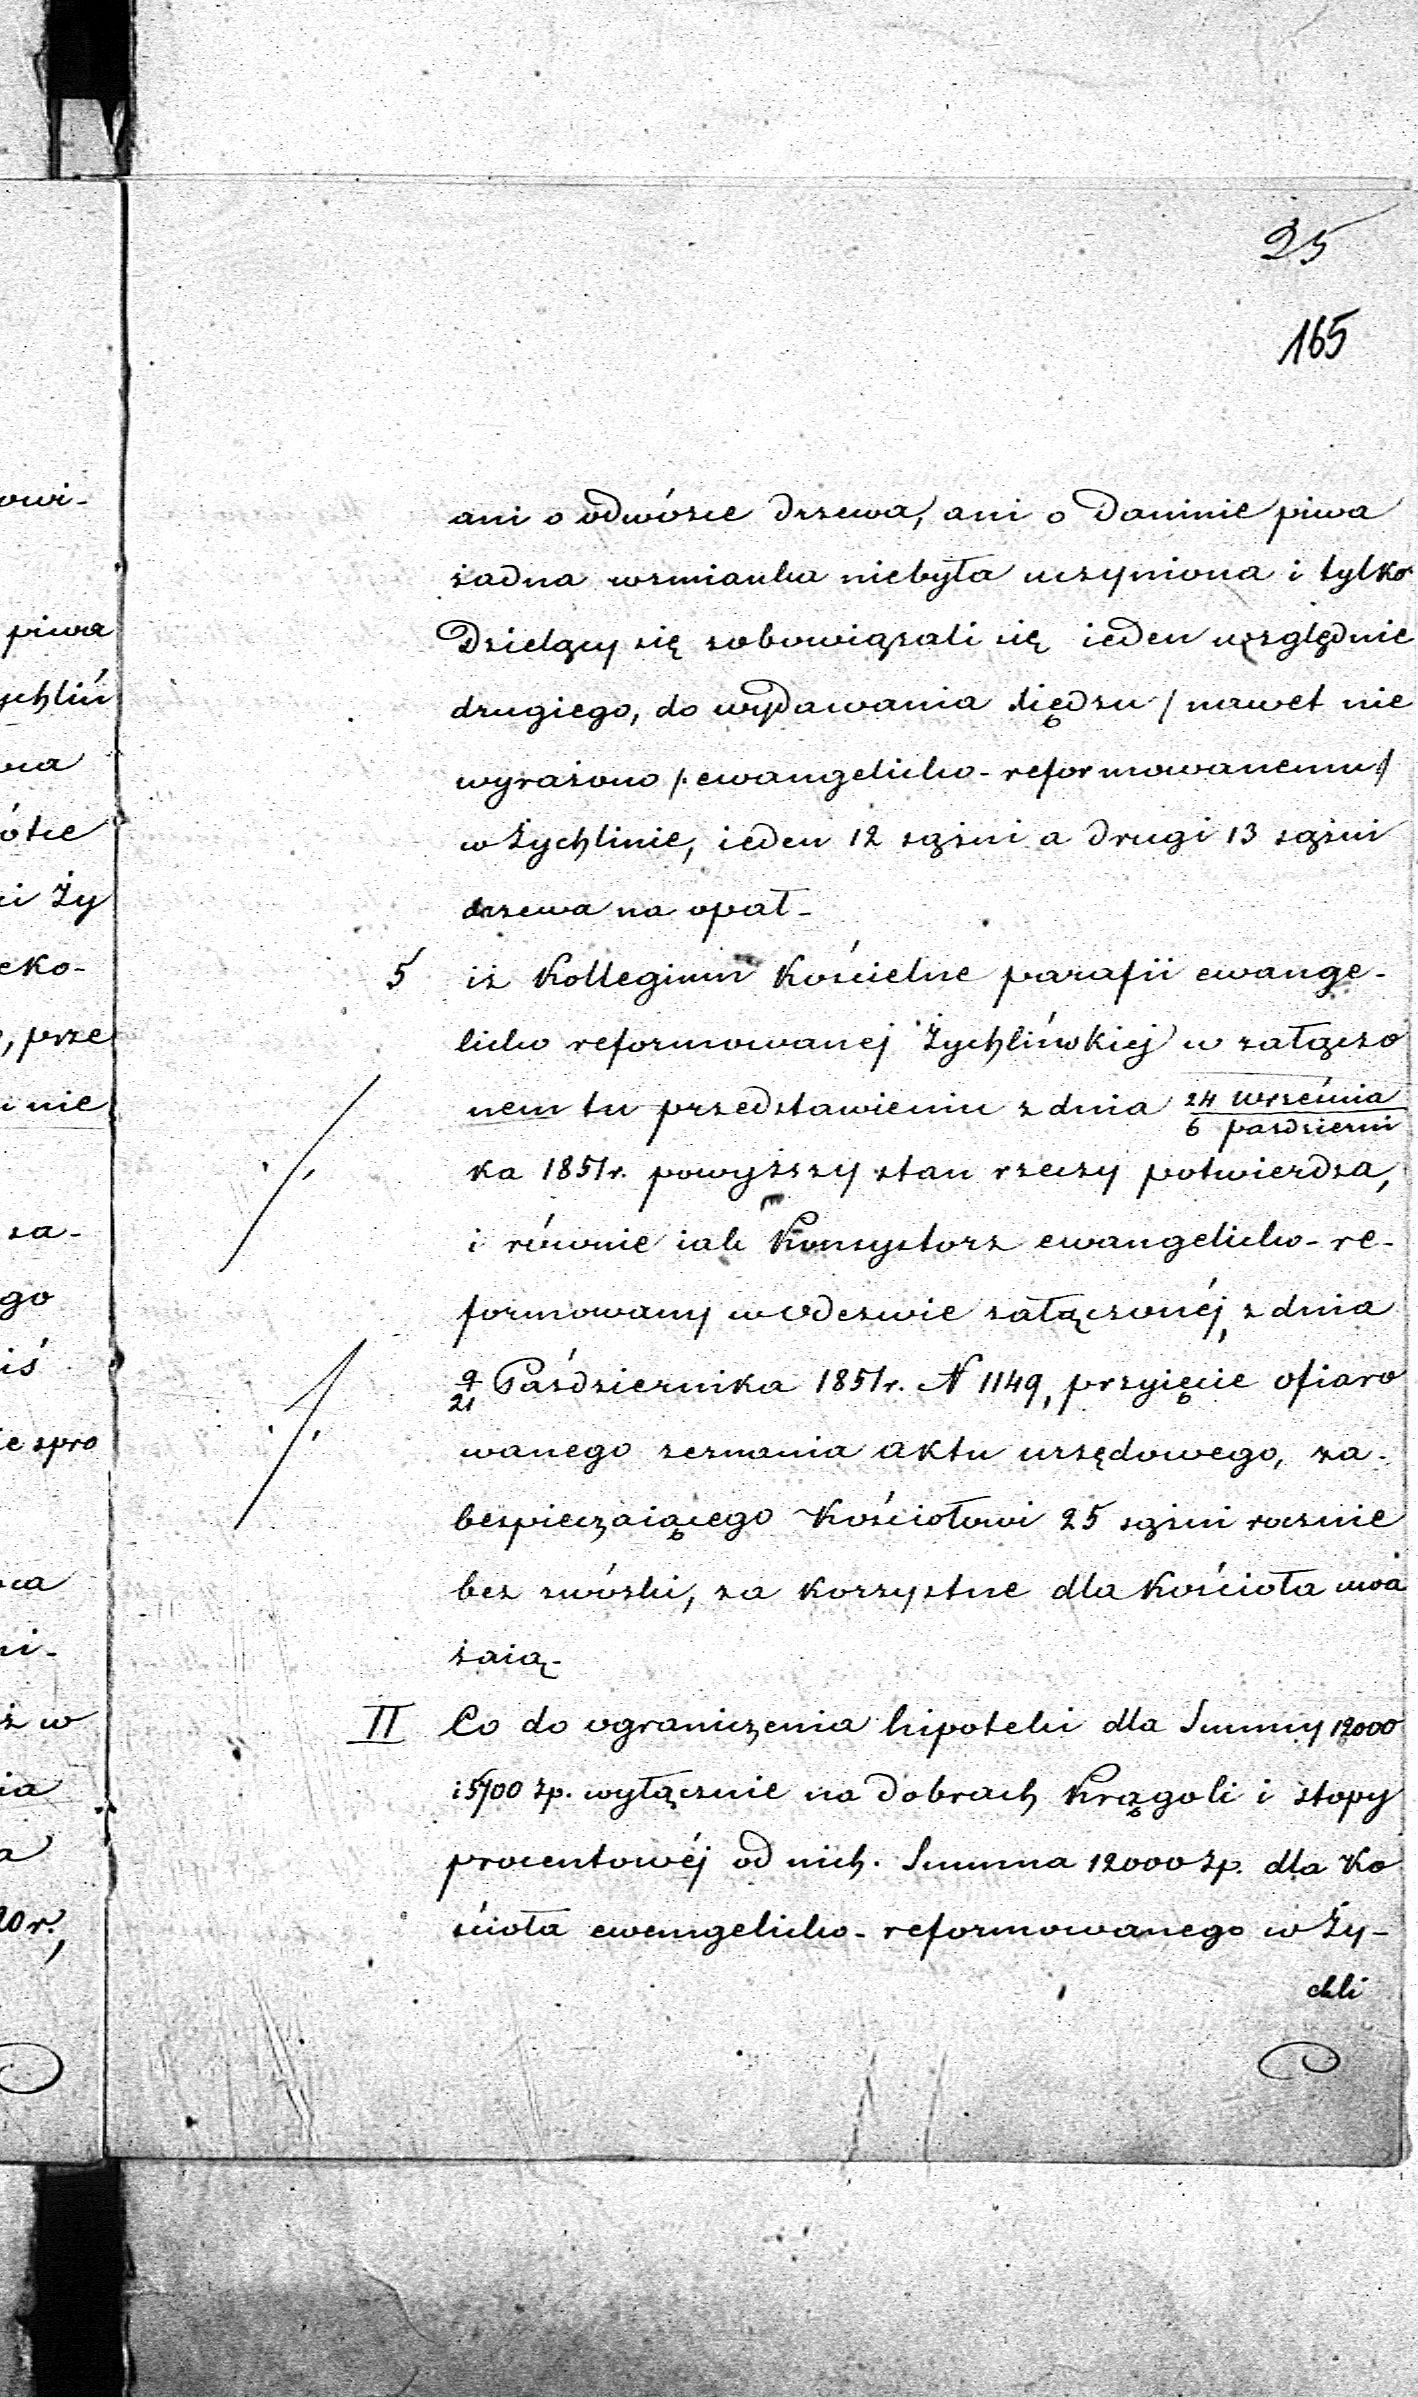 25
165
ani o odwózce drzewa, ani o daninie piwa
żadna wzmianka niebyła uczyniona i tylko
Dzielący się zobowiązali się ieden względnie
drugiego, do wydawania xiędzu / nawet nie
wyrażono /: ewangelicko-reformowanemu /
w Żychlinie, ieden 12 sążni a drugi 13 sążni
drzewa na opał -
5 iż Kollegium Kościelne parafii ewange-
licko reformowanej Żychlińskiej w załączo
nem tu przedstawieniu z dnia 24 września / 6 październi
ka 1851 r. powyższy stan rzeczy potwierdza,
i równie iak Konsystorz ewangelicko-re-
formowany w odezwie załączonéj, z dnia
9/21 Października 1851 r. N 1149, przyięcie ofiaro
wanego zeznania aktu urzędowego, za-
bezpieczaiącego Kościołowi 25 sążni rocznie
bez zwózki, za korzystne dla Kościoła uwa
żaią -
II Co do ograniczenia hipoteki dla Summy 12000
i 5700 zp. wyłącznie na dobrach Krągoli i stopy
procentowéj od nich. Summa 12000 zp. dla Ko
ścioła ewangelicko-reformowanego w Ży-
chli
owi-
piwa
ychliń
ótce
i Ży
eko-
, prze
nie
za-
go
iś
ie spro
ni-
ż w
ia
20 r.,